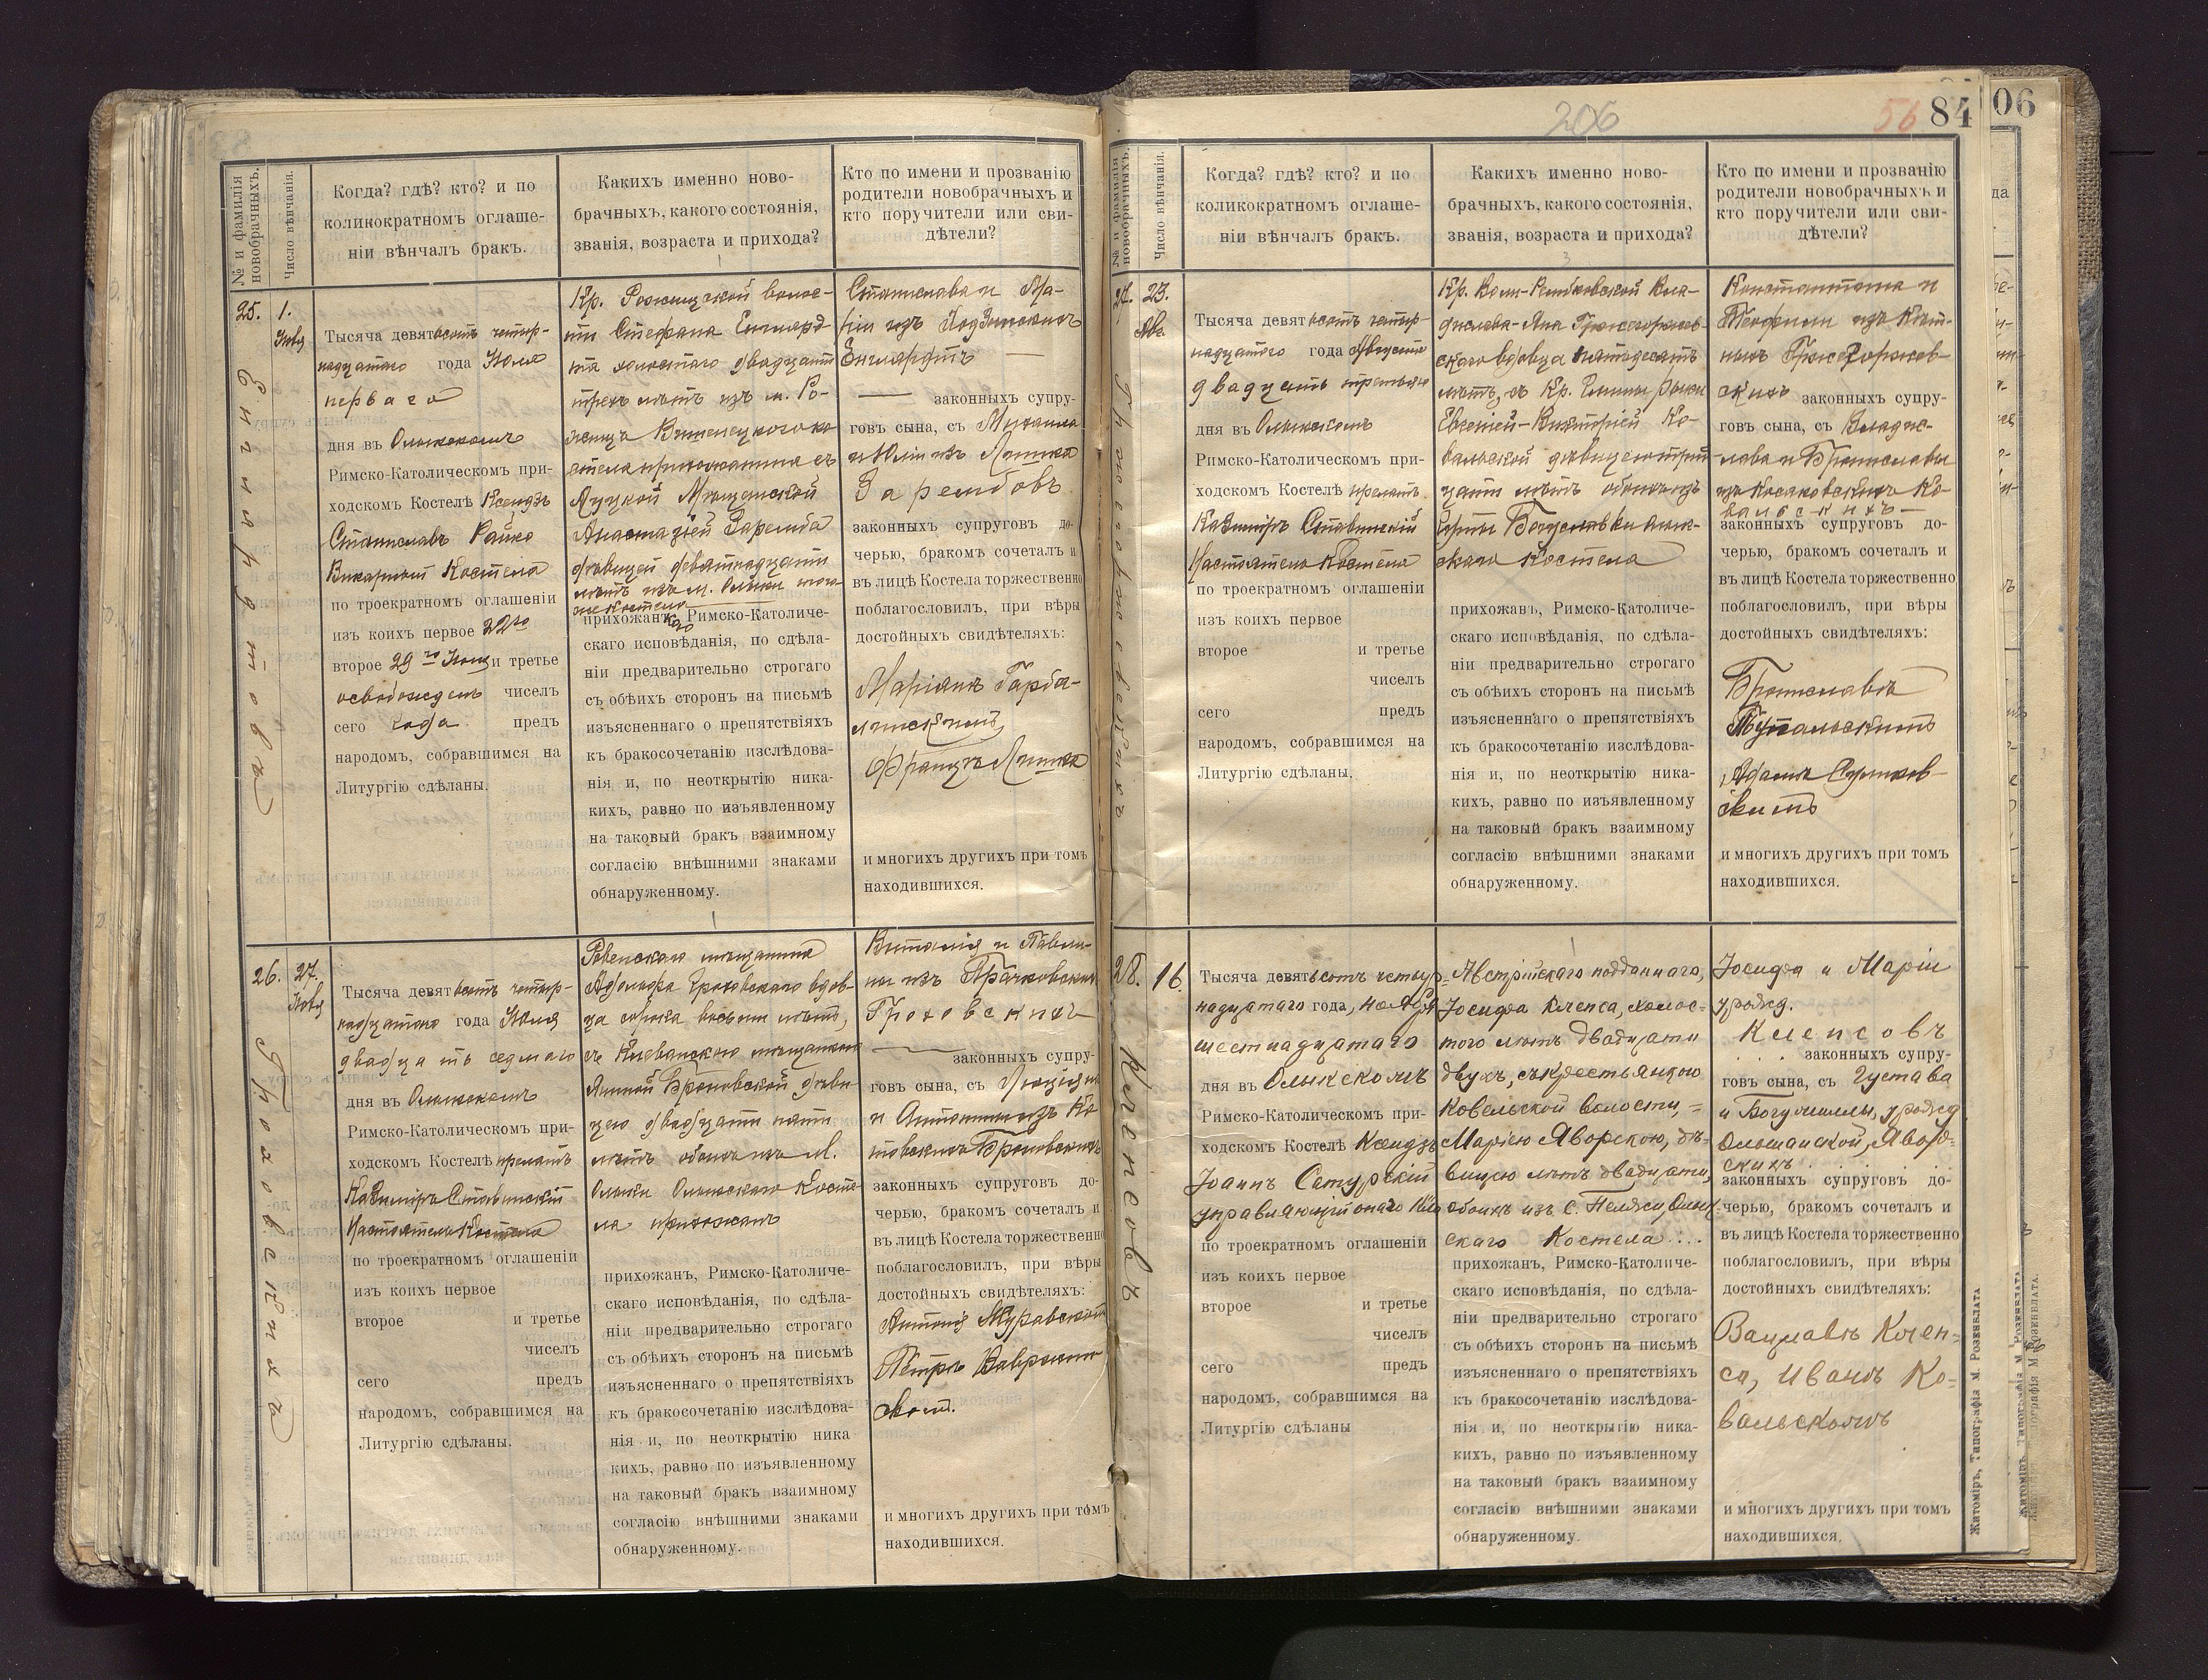 206
56 84
06
№ и фамилія новобрачныхъ.
Число вѣнчанія.
Когда? гдѣ? кто? и по
коликократномъ оглаше-
ніи вѣнчалъ бракъ.
Какихъ именно ново-
брачныхъ, какого состоянія,
званія, возраста и прихода?
Кто по имени и прозванію
родители новобрачныхъ и
кто поручители или сви-
дѣтели?
25.
1.
Енгляртовъ
Тысяча девятьсотъ четыр-
надцатаго года Юля
перваго
дня въ Олыкскомъ
Римско-Католическомъ при-
ходскомъ Костелѣ Ксендзъ
Станиславъ Райко
Викарный Костела
по троекратномъ оглашеніи
изъ коихъ первое 22го
второе 29го и третье
освобожденъ чиселъ
сего года предъ
народомъ, собравшимся на
Литургію сдѣланы.
Кр. Рожищской волос-
ти Стефана Енглярд-
та холостаго двадцати
трехъ лѣтъ изъ м. Ро-
жищъ
костела прихожанина съ
Луцкой Мѣщанской
Анастазіей Заремба
дѣвицей девятнадцати
лѣтъ изъ м. Олыки того
же Костела
прихожанъ, Римско-Католиче-
скаго исповѣданія, по сдѣла-
ніи предварительно строгаго
съ обѣихъ сторонъ на письмѣ
изъясненнаго о препятствіяхъ
къ бракосочетанію изслѣдова-
нія и, по неоткрытію ника-
кихъ, равно по изъявленному
на таковый бракъ взаимному
согласію внѣшними знаками
обнаруженному.
Станислава и Ма-
ріи изъ
Енглярдтъ
законныхъ супру-
говъ сына, съ Михаила
и Юліи изъ Липка
Зарембовъ
законныхъ супруговъ до-
черью, бракомъ сочеталъ и
въ лицѣ Костела торжественно
поблагословилъ, при вѣры
достойныхъ свидѣтеляхъ:
Маріянъ Гарба-
линскимъ
Францъ Липка
и многихъ другихъ при томъ
находившихся.
26.
27.
Гроховскихъ
Тысяча девятьсотъ четыр-
надцатаго года Юля
двадцать седмаго
дня въ Олыкскомъ
Римско-Католическомъ при-
ходскомъ Костелѣ прелатъ
Казиміръ Ставинскій
Настоятель Костела
по троекратномъ оглашеніи
изъ коихъ первое
второе и третье
чиселъ
сего предъ
народомъ, собравшимся на
Литургію сдѣланы.
Ровенскаго мѣщанина
Адольфа Гроховскаго вдов-
ца сорока восьми лѣтъ,
съ Клеванскою мѣщанкою
Анной Броновской дѣви-
цею двадцати пяти
лѣтъ обоихъ изъ М.
Олыки Олыкскаго Косте-
ла прихожанъ
прихожанъ, Римско-Католиче-
скаго исповѣданія, по сдѣла-
ніи предварительно строгаго
съ обѣихъ сторонъ на письмѣ
изъясненнаго о препятствіяхъ
къ бракосочетанію изслѣдова-
нія и, по неоткрытію ника
кихъ, равно по изъявленному
на таковый бракъ взаимному
согласію внѣшними знаками
обнаруженному.
Виталія и Павли-
ны изъ
Гроховскихъ
законныхъ супру-
говъ сына, съ Люціяна
и Антонины изъ
Броновскихъ
законныхъ супруговъ до-
черью, бракомъ сочеталъ и
въ лицѣ Костела торжественно
поблагословилъ, при вѣры
достойныхъ свидѣтеляхъ:
Антонія Муравской
Петръ
и многихъ другихъ при томъ
находившихся.
№ и фамилія новобрачныхъ.
Число вѣнчанія.
Когда? гдѣ? кто? и по
коликократномъ оглаше-
ніи вѣнчалъ бракъ.
Какихъ именно ново-
брачныхъ, какого состоянія,
званія, возраста и прихода?
Кто по имени и прозванію
родители новобрачныхъ и
кто поручители или сви-
дѣтели?
27.
23.
Авг.
Тысяча девятьсотъ четыр-
надцатаго года Августа
двадцать третьяго
дня въ Олыкскомъ
Римско-Католическомъ при-
ходскомъ Костелѣ прелатъ
Казиміръ Ставинскій
Настоятель Костела
по троекратномъ оглашеніи
изъ коихъ первое
второе и третье
чиселъ
сего предъ
народомъ, собравшимся на
Литургію сдѣланы.
Кр. Вла-
дислава-Яна Гржегоржев-
скаго вдовца пятьдесятъ
лѣтъ, съ Кр. Гмины
Евгеніей-Викторіей Ко-
вальской дѣвицею трид-
цати лѣтъ обоихъ изъ
Богуславки Олык-
скаго Костела
прихожанъ, Римско-Католиче-
скаго исповѣданія, по сдѣла-
ніи предварительно строгаго
съ обѣихъ сторонъ на письмѣ
изъясненнаго о препятствіяхъ
къ бракосочетанію изслѣдова-
нія и, по неоткрытію ника-
кихъ, равно по изъявленному
на таковый бракъ взаимному
согласію внѣшними знаками
обнаруженному.
Константина и
Теофили изъ
Гржегоржев-
скихъ законныхъ супру-
говъ сына, съ Владис-
лава и Брониславы
изъ Косаковскихъ Ко-
вальскихъ
законныхъ супруговъ до-
черью, бракомъ сочеталъ и
въ лицѣ Костела торжественно
поблагословилъ, при вѣры
достойныхъ свидѣтеляхъ:
Брониславъ
Тупальскимъ
Адамъ Сулков-
скимъ
и многихъ другихъ при томъ
находившихся.
28.
16.
Клепсовъ
Тысяча девятьсотъ четыр-
надцатаго года, ноября
шестнадцатаго
дня въ Олыкскомъ
Римско-Католическомъ при-
ходскомъ Костелѣ Ксендзъ
Іоаннъ Сатурскій
управляющій онаго
по троекратномъ оглашеніи
изъ коихъ первое
второе и третье
чиселъ
сего предъ
народомъ, собравшимся на
Литургію сдѣланы
Австрійскаго подданнаго,
Іосифа Клепса, холос-
того лѣтъ двадцати
двухъ, съ крестьянкою
Ковельской волости,
Маріею Яворскою, дѣ-
вицею лѣтъ двадцати,
обоихъ изъ С. Пелжи, Олык-
скаго Костела....
прихожанъ, Римско-Католиче-
скаго исповѣданія, по сдѣла-
ніи предварительно строгаго
съ обѣихъ сторонъ на письмѣ
изъясненнаго о препятствіяхъ
къ бракосочетанію изслѣдова-
нія и, по неоткрытію ника-
кихъ, равно по изъявленному
на таковый бракъ взаимному
согласію внѣшними знаками
обнаруженному.
Іосифа и Маріи
урожд.
Клепсовъ
законныхъ супру-
говъ сына, съ Густава
и Богумиллы, урожд
Ольшанской, Явор-
скихъ
законныхъ супруговъ до-
черью, бракомъ сочеталъ и
въ лицѣ Костела торжественно
поблагословилъ, при вѣры
достойныхъ свидѣтеляхъ:
Вацлавъ Клеп-
са, Иванъ Ко-
вальскомъ
и многихъ другихъ при томъ
находившихся.
Житоміръ, Типографія М. Розенблата